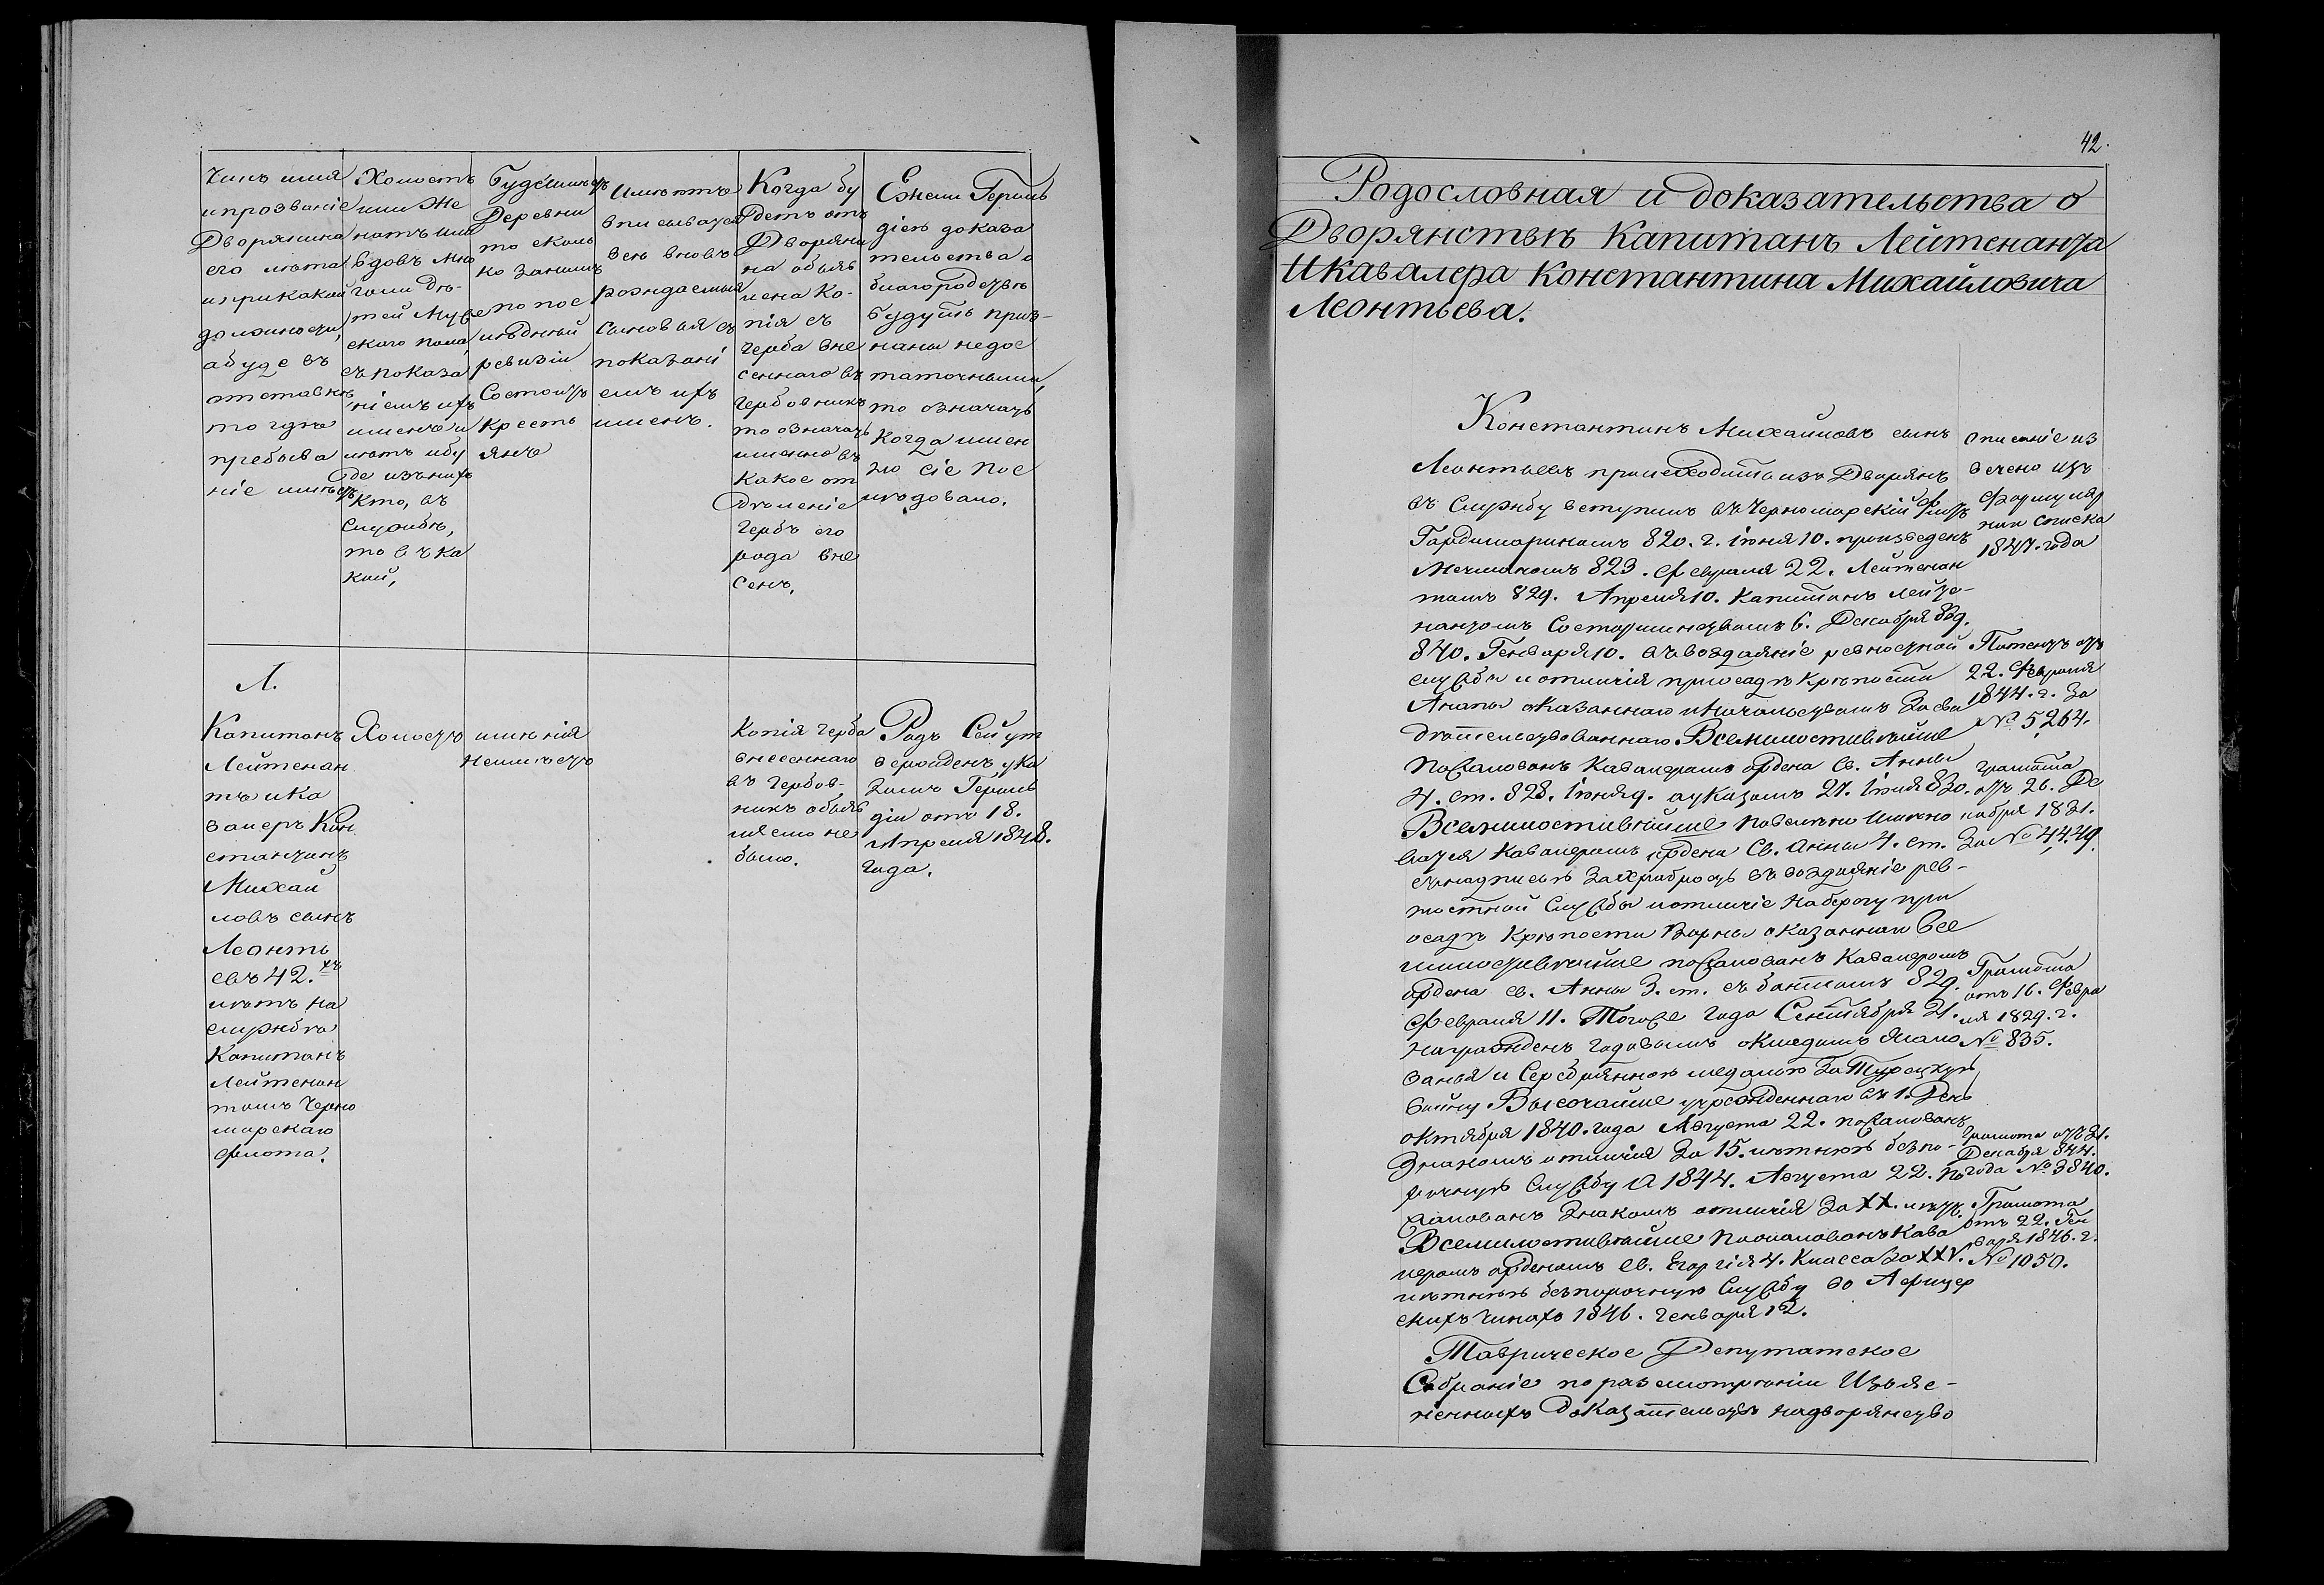 Чинъ имя
и прозваніе
Дворянина
его лѣта
и при какой
должности,
а буде въ
отставкѣ
то гдѣ
пребыва
ніе имѣетъ
Холостъ
или Же
натъ или
вдовъ мно
голи дѣ-
тей Муже
скаго пола,
съ показа
ніемъ ихъ
именъ и
лѣтъ и бу
де изъ нихъ
кто, въ
Службѣ,
то въ ка
кой,
Буде имѣетъ
Деревни
то сколь
ко за нимъ
по пос
лѣдней
ревизіи
Состоитъ
кресть
янъ
Имѣютъ
вписываться
всѣ вновь
рождаемыя
сыновья съ
показані
емъ ихъ
именъ.
Когда бу
детъ отъ
Дворяни
на объяв
лена Ко-
пія съ
герба вне
сеннаго въ
гербовникъ
то означать
именно въ
какое от
дѣленіе
гербъ его
рода вне
сенъ,
Ежели Героль
діею доказа
тельства о
благородствѣ
будутъ приз-
наны недос
таточными,
то означать
когда имен
но сіе пос
лѣдовало.
Л.
Капитанъ
Лейтенан
тъ и Ка
валеръ Кон
стантинъ
Михай
ловъ сынъ
Леонть
евъ 42.хъ
лѣтъ на
службѣ
Капитанъ
Лейтенан
томъ Черно
морскаго
флота.
Холостъ
имѣнія
неимѣетъ
Копія герба
внесеннаго
въ гербов-
никъ объяв
ляемо не
было.
Родъ Сей ут
вержденъ ука
зомъ Героль
діи отъ 18.
Апреля 1848.
года.
42.
Родословная и доказательства о
Дворянствѣ Капитанъ Лейтенанта
И кавалера Константина Михайловича
Леонтьева.
Константинъ Михайловъ сынъ
Леонтьевъ происходитъ изъ Дворянъ
въ Службу вступилъ въ Черноморскій флотъ
Гардемариномъ 820. г. іюня 10. произведенъ
Мичманомъ 823. февраля 22. Лейтенан
томъ 829. Апреля 10. Капитанъ Лейте-
нантомъ Со старшинствомъ 6. Декабря 839.
840. Генваря 10. въ воздаяніе ревностной
службы и отличія при осадѣ Крѣпости
Анапы оказаннаго и Начальствомъ Засви
дѣтельствованнаго Всемилостивѣйше
пожалованъ Кавалеромъ ордена Св. Анны
4. ст. 828. іюня 9. а указомъ 27. іюля 830.
Всемилостивѣйше повелѣно Имено
ваться Кавалеромъ ордена Св. Анны 4. ст.
съ надписью За храбрость въ воздаяніе рев-
ностной Службы и отличіе На берегу при
осадѣ Крѣпости Варны оказаннаго Все
милостивѣйше пожалованъ Кавалеромъ
ордена св. Анны 3. ст. съ бантомъ 829.
Февраля 11. Того же года Сентября 21.
награжденъ годовымъ окладомъ жало
ванья и Серебрянною медалью За Турецкую
войну Высочайше учрежденною въ 1. День
октября 1840. года Августа 22. пожалованъ
Знакомъ отличія За 15. лѣтнюю безпо-
рочную Службу а 1844. Августа 22. по
жалованъ Знакомъ отличія За XX. лѣтъ.
Всемилостивѣйше пожалованъ Кава
леромъ орденомъ св. Егоргія 4. Класса За XXV.
лѣтнюю безпорочную Службу во Афицер
скихъ Чинахъ 1846. Генваря 12.
Таврическое Депутатское
Собраніе по разсмотрѣніи Изъяс-
ненныхъ доказательствъ на дворянство
описаніе из
влечено изъ
Формуляр
наго списка
1847. года
Патентъ отъ
22. Февраля
1844. г. За
№ 5,264.
грамота
отъ 26. Де
кабря 1831.
За № 4,429.
Грамота
отъ 16. Февра
ля 1829. г.
№ 835.
грамота отъ 31.
Декабря 844.
года № 3840.
Грамота
отъ 22. Ген
варя 1846. г.
№ 1050.